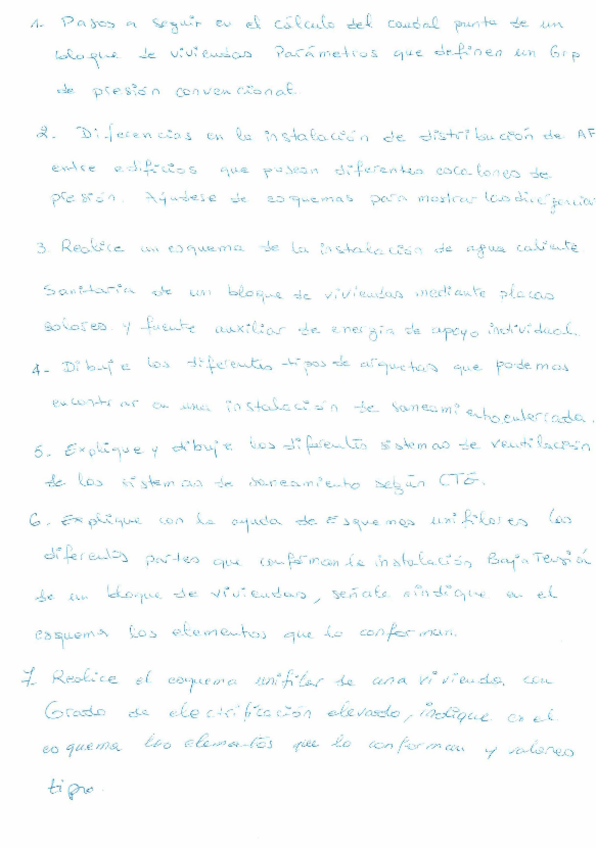 1- Pasos a seguir en el cálculo del caudal punta de un
bloque de viviendas Parámetros que definen un Grp
de presión convencional.
2. Diferencias en la instalación de distribución de AF
entre edificios que posean diferentes escalones de
presión. Ayúdese de esquemas para mostrar las
3. Realice un esquema de la instalación de agua caliente
Sanitaria de un bloque de viviendas mediante placas
solares y fuente auxiliar de energía de apoyo individual.
4- Dibuje los diferentes tipos de arquetas que podemos
encontrar en una instalación de saneamiento enterrada.
5. Explique y dibuje los diferentes sistemas de ventilación
de los sistemas de saneamiento según CTE.
6. Explique con la ayuda de Esquemas unifilares las
diferentes partes que conforman la instalación Baja Tensión
de un bloque de viviendas, señale e indique en el
esquema los elementos que lo conforman.
7. Realice el esquema unifilar de una vivienda con
Grado de electrificación elevado, indique en el
esquema los elementos que lo conforman y valores
tipo.